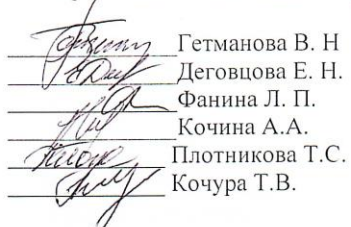 Гетманова В. Н
Деговцова Е. Н.
Фанина Л. П.
Кочина А.А.
Плотникова Т.С.
Кочура Т.В.